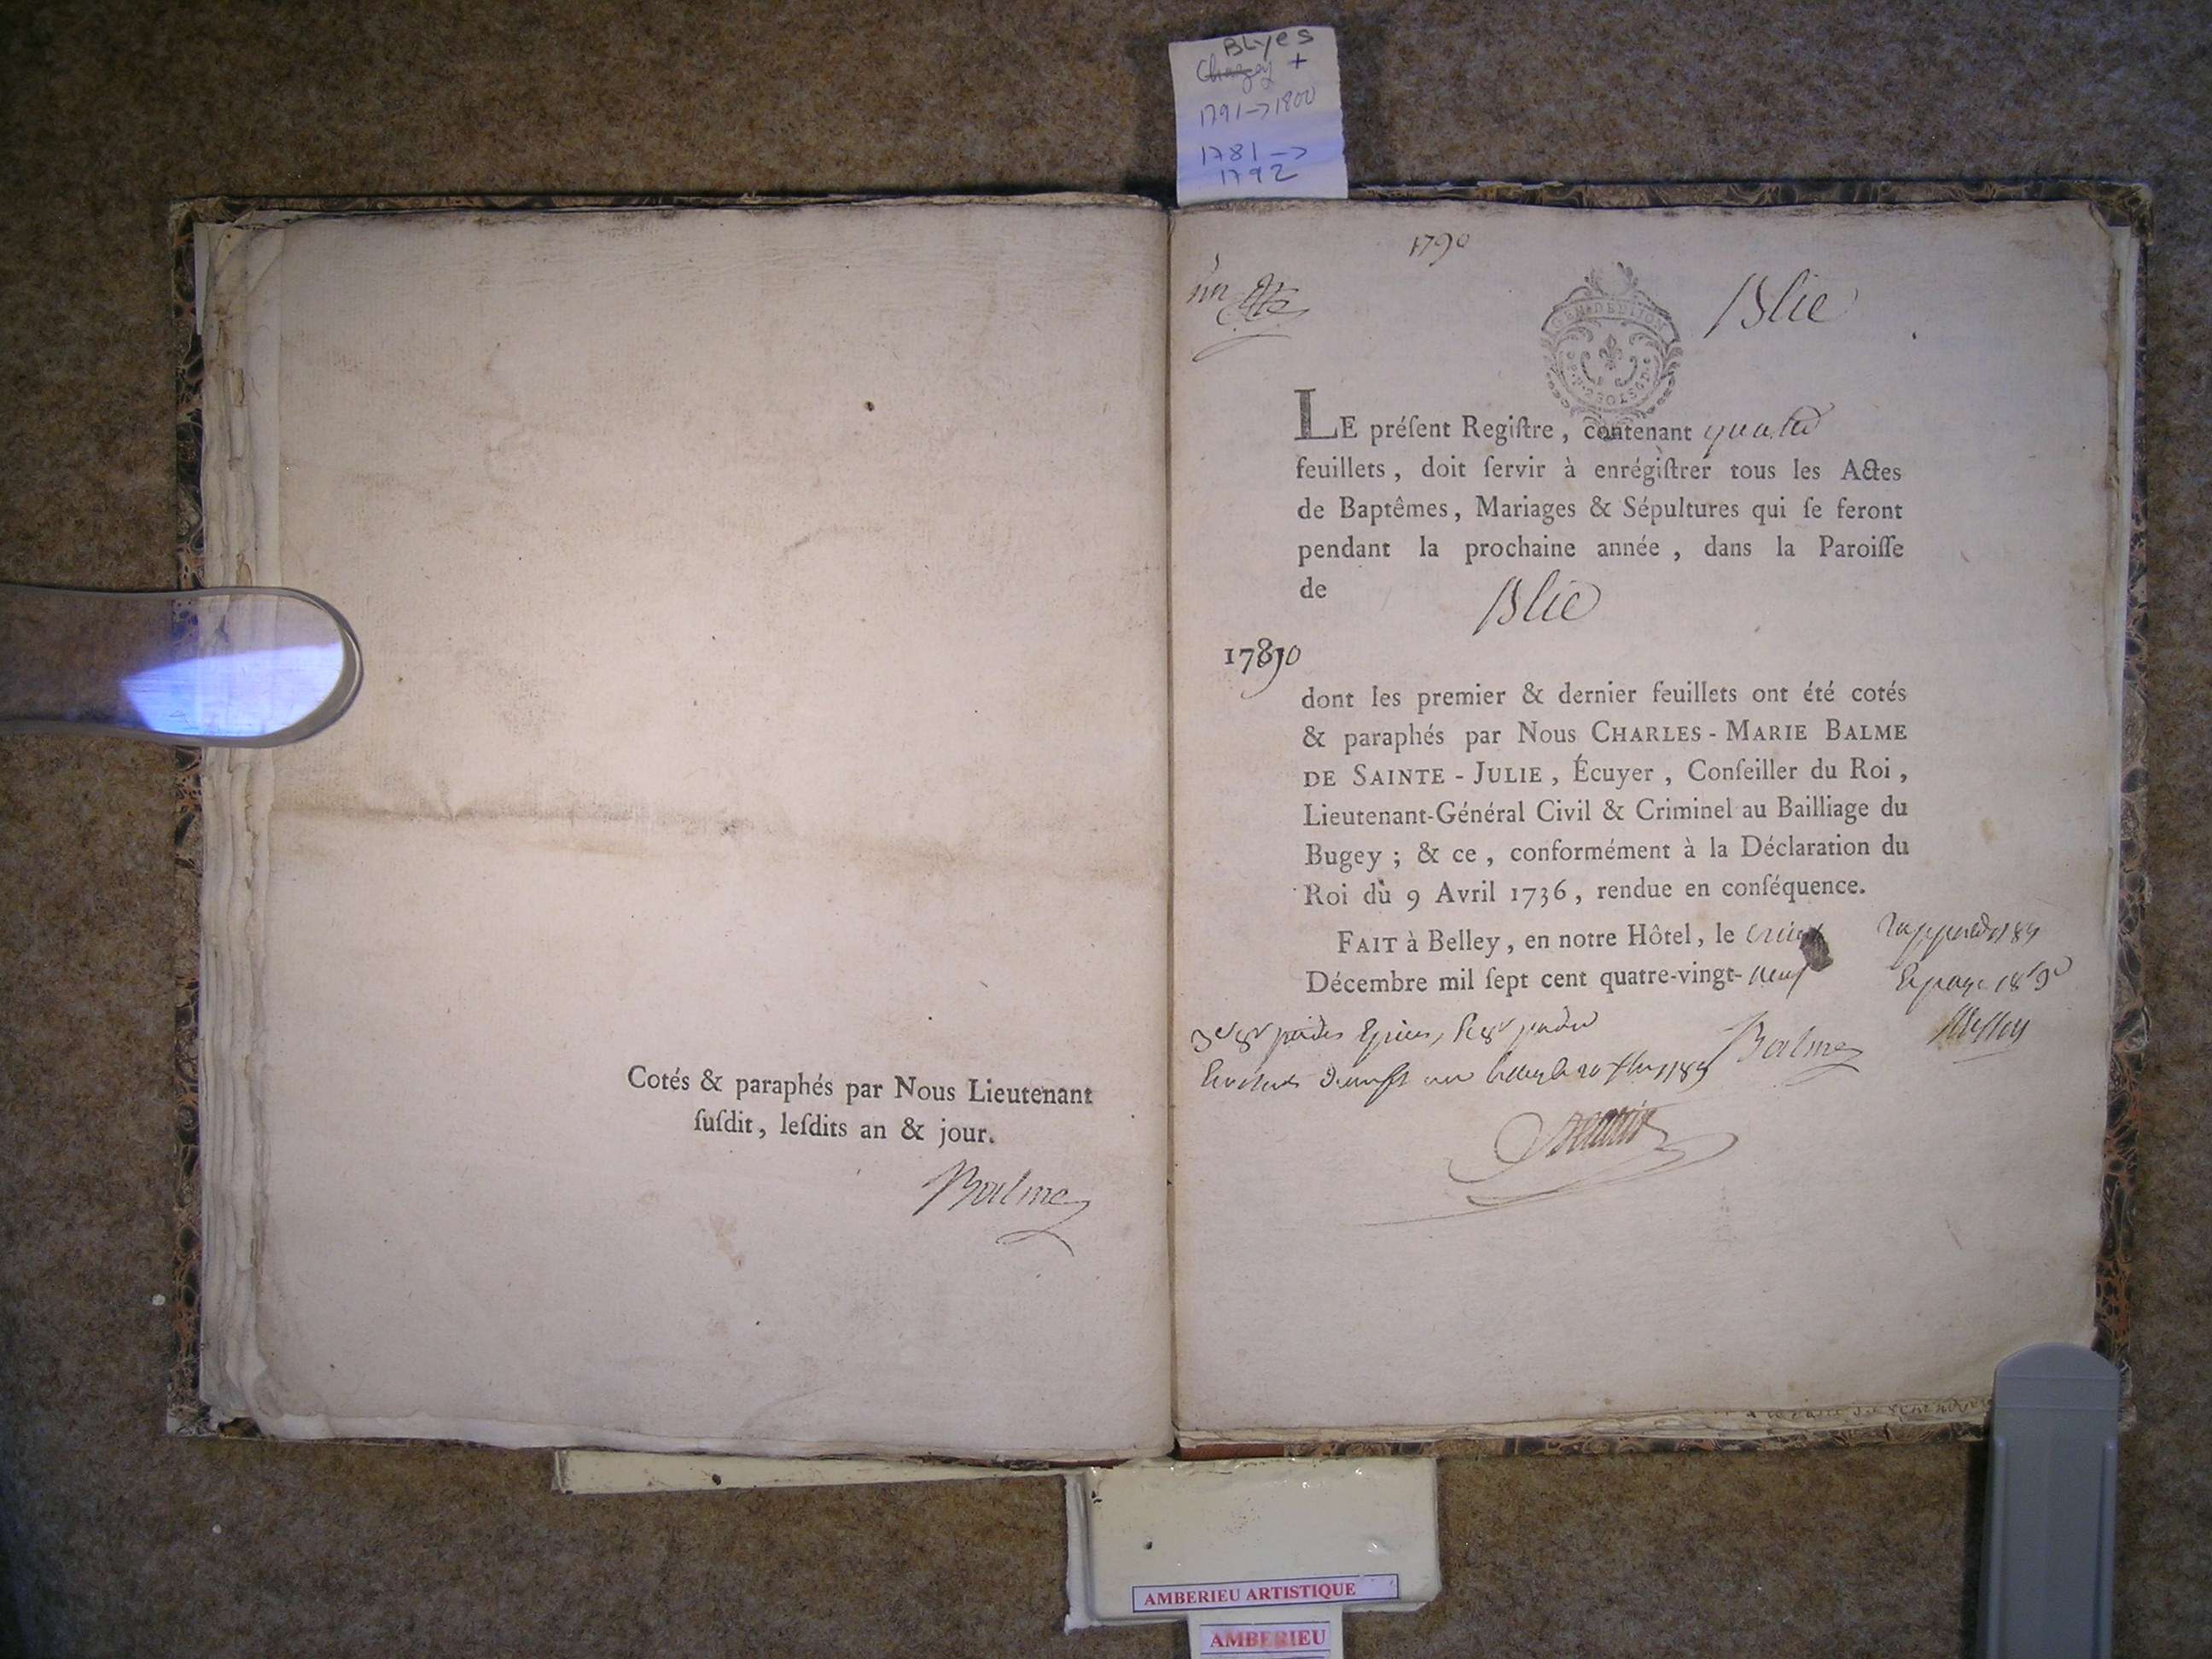 BLyes
Chazey +
1791->1800
1781->
1792
Cotés & paraphés par Nous Lieutenant
ſuſdit, leſdits an & jour.
Balme
1790
un
Blie
GEN. DE DIJON
LE préſent Regiſtre, contenant quatre
feuillets, doit ſervir à enrégiſtrer tous les Actes
de Baptêmes, Mariages & Sépultures qui ſe feront
pendant la prochaine année, dans la Paroiſſe
de Blie
1790
dont les premier & dernier feuillets ont été cotés
& paraphés par Nous CHARLES-MARIE BALME
DE SAINTE-JULIE, Écuyer, Conſeiller du Roi,
Lieutenant-Général Civil & Criminel au Bailliage du
Bugey; & ce, conformément à la Déclaration du
Roi du 9 Avril 1736, rendue en conſéquence.
FAIT à Belley, en notre Hôtel, le
Décembre mil ſept cent quatre-vingt-neuf
Balme
AMBERIEU ARTISTIQUE
AMBERIEU